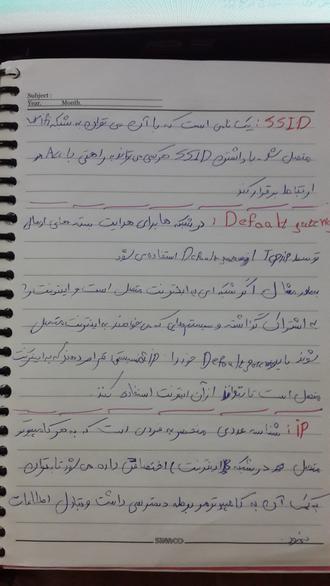 Subject :
Year. Month.
SSID : یک نامی است که با آن می توان به شبکه wifi
متصل شد. با داشتن SSID هر کسی می تواند براحتی با Acc
ارتباط برقرار کند
Defoalt gateway : در شبکه ها برای هدایت بسته های ارسال
توسط Tcp/ip از Default gateway استفاده می شود
بطور مثال اگر شبکه ای به اینترنت متصل است و اینترنت را
به اشتراک گذاشته و سیستم هایی که می خواهند به اینترنت متصل
شوند باید Default gateway خود را ip قرار دهند که به اینترنت
متصل است تا بتوانند از آن اینترنت استفاده کنند.
iP : شناسه عددی منحصر به فردی است که به هر کامپیوتر
متصل در شبکه (اینترنت) اختصاص داده می شود تا بتوان
به کمک آن به کامپیوتر مربوطه دسترسی داشت و تبادل اطلاعات
نمود.
SIMCO